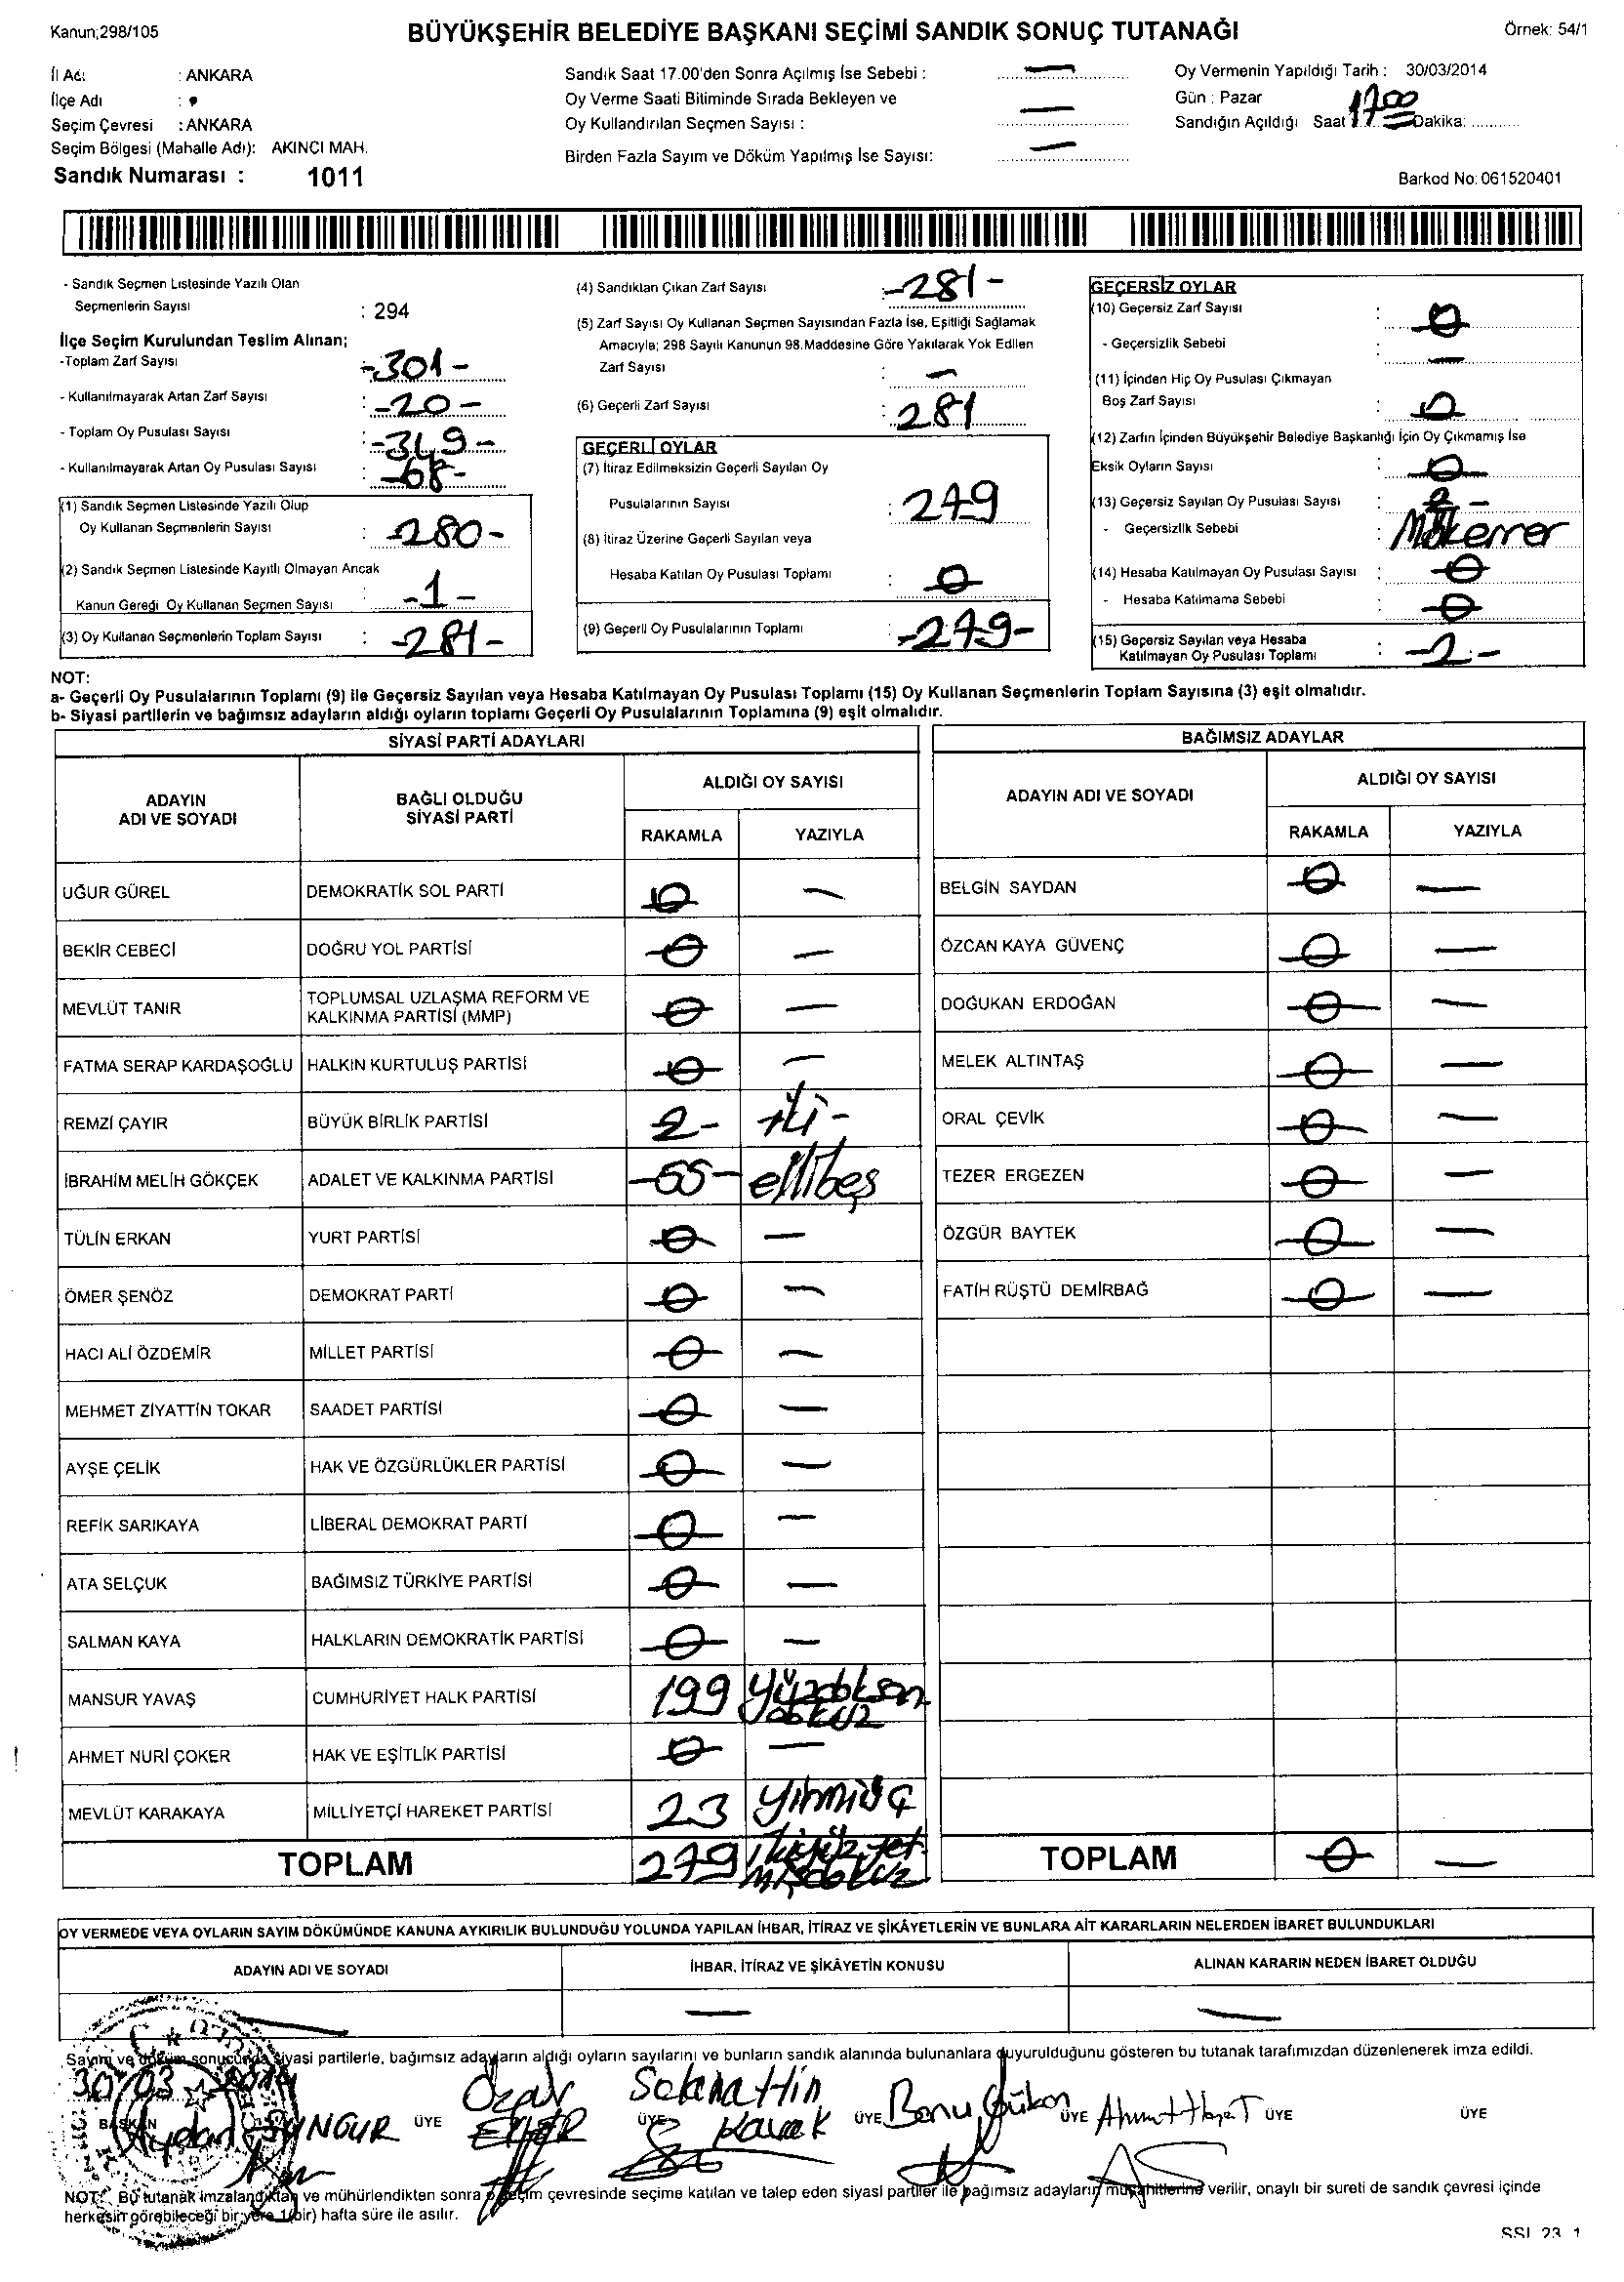 Kanun;298/105
BÜYÜKŞEHİR BELEDİYE BAŞKANI SEÇİMİ SANDIK SONUÇ TUTANAĞI
Örnek: 54/1
İl Adı : ANKARA
İlçe Adı :
Seçim Çevresi : ANKARA
Seçim Bölgesi (Mahalle Adı): AKINCI MAH.
Sandık Numarası : 1011
Sandık Saat 17.00'den Sonra Açılmış İse Sebebi : —
Oy Verme Saati Bitiminde Sırada Bekleyen ve
Oy Kullandırılan Seçmen Sayısı : —
Birden Fazla Sayım ve Döküm Yapılmış İse Sayısı: —
Oy Vermenin Yapıldığı Tarih : 30/03/2014
Gün : Pazar
Sandığın Açıldığı Saat 17.00 Dakika: ..........
Barkod No: 061520401
- Sandık Seçmen Listesinde Yazılı Olan
Seçmenlerin Sayısı : 294
İlçe Seçim Kurulundan Teslim Alınan;
-Toplam Zarf Sayısı : -301-
- Kullanılmayarak Artan Zarf Sayısı : -20-
- Toplam Oy Pusulası Sayısı : -349-
- Kullanılmayarak Artan Oy Pusulası Sayısı : -68-
(1) Sandık Seçmen Listesinde Yazılı Olup
Oy Kullanan Seçmenlerin Sayısı : -280-
(2) Sandık Seçmen Listesinde Kayıtlı Olmayan Ancak
Kanun Gereği Oy Kullanan Seçmen Sayısı : -1-
(3) Oy Kullanan Seçmenlerin Toplam Sayısı : -281-
(4) Sandıktan Çıkan Zarf Sayısı : -281-
(5) Zarf Sayısı Oy Kullanan Seçmen Sayısından Fazla İse, Eşitliği Sağlamak
Amacıyla; 298 Sayılı Kanunun 98.Maddesine Göre Yakılarak Yok Edilen
Zarf Sayısı : —
(6) Geçerli Zarf Sayısı : 281
GEÇERLİ OYLAR
(7) İtiraz Edilmeksizin Geçerli Sayılan Oy
Pusulalarının Sayısı : 279
(8) İtiraz Üzerine Geçerli Sayılan veya
Hesaba Katılan Oy Pusulası Toplamı : 0
(9) Geçerli Oy Pusulalarının Toplamı : -279-
GEÇERSİZ OYLAR
(10) Geçersiz Zarf Sayısı : 0
- Geçersizlik Sebebi : —
(11) İçinden Hiç Oy Pusulası Çıkmayan
Boş Zarf Sayısı : 0
(12) Zarfın İçinden Büyükşehir Belediye Başkanlığı İçin Oy Çıkmamış İse
Eksik Oyların Sayısı : 0
(13) Geçersiz Sayılan Oy Pusulası Sayısı : 2 -
- Geçersizlik Sebebi : Mükerrer
(14) Hesaba Katılmayan Oy Pusulası Sayısı : 0
- Hesaba Katılmama Sebebi : 0
(15) Geçersiz Sayılan veya Hesaba
Katılmayan Oy Pusulası Toplamı : -2-
NOT:
a- Geçerli Oy Pusulalarının Toplamı (9) ile Geçersiz Sayılan veya Hesaba Katılmayan Oy Pusulası Toplamı (15) Oy Kullanan Seçmenlerin Toplam Sayısına (3) eşit olmalıdır.
b- Siyasi partilerin ve bağımsız adayların aldığı oyların toplamı Geçerli Oy Pusulalarının Toplamına (9) eşit olmalıdır.
SİYASİ PARTİ ADAYLARI
ADAYIN ADI VE SOYADI
BAĞLI OLDUĞU SİYASİ PARTİ
ALDIĞI OY SAYISI
RAKAMLA YAZIYLA
UĞUR GÜREL DEMOKRATİK SOL PARTİ 0 —
BEKİR CEBECİ DOĞRU YOL PARTİSİ 0 —
MEVLÜT TANIR TOPLUMSAL UZLAŞMA REFORM VE KALKINMA PARTİSİ (MMP) 0 —
FATMA SERAP KARDAŞOĞLU HALKIN KURTULUŞ PARTİSİ 0 —
REMZİ ÇAYIR BÜYÜK BİRLİK PARTİSİ 2- iki-
İBRAHİM MELİH GÖKÇEK ADALET VE KALKINMA PARTİSİ -55- ellibeş
TÜLİN ERKAN YURT PARTİSİ 0 —
ÖMER ŞENÖZ DEMOKRAT PARTİ 0 —
HACI ALİ ÖZDEMİR MİLLET PARTİSİ 0 —
MEHMET ZİYATTİN TOKAR SAADET PARTİSİ 0 —
AYŞE ÇELİK HAK VE ÖZGÜRLÜKLER PARTİSİ 0 —
REFİK SARIKAYA LİBERAL DEMOKRAT PARTİ 0 —
ATA SELÇUK BAĞIMSIZ TÜRKİYE PARTİSİ 0 —
SALMAN KAYA HALKLARIN DEMOKRATİK PARTİSİ 0 —
MANSUR YAVAŞ CUMHURİYET HALK PARTİSİ 199 yüzdoksan dokuz
AHMET NURİ ÇOKER HAK VE EŞİTLİK PARTİSİ 0 —
MEVLÜT KARAKAYA MİLLİYETÇİ HAREKET PARTİSİ 23 yirmiüç
TOPLAM 279 ikiyüzyetmişdokuz
BAĞIMSIZ ADAYLAR
ADAYIN ADI VE SOYADI
ALDIĞI OY SAYISI
RAKAMLA YAZIYLA
BELGİN SAYDAN 0 —
ÖZCAN KAYA GÜVENÇ 0 —
DOĞUKAN ERDOĞAN 0 —
MELEK ALTINTAŞ 0 —
ORAL ÇEVİK 0 —
TEZER ERGEZEN 0 —
ÖZGÜR BAYTEK 0 —
FATİH RÜŞTÜ DEMİRBAĞ 0 —
TOPLAM 0 —
OY VERMEDE VEYA OYLARIN SAYIM DÖKÜMÜNDE KANUNA AYKIRILIK BULUNDUĞU YOLUNDA YAPILAN İHBAR, İTİRAZ VE ŞİKÂYETLERİN VE BUNLARA AİT KARARLARIN NELERDEN İBARET BULUNDUKLARI
ADAYIN ADI VE SOYADI
İHBAR, İTİRAZ VE ŞİKÂYETİN KONUSU
ALINAN KARARIN NEDEN İBARET OLDUĞU
Sayım ve döküm sonucunda siyasi partilerle, bağımsız adayların aldığı oyların sayılarını ve bunların sandık alanında bulunanlara duyurulduğunu gösteren bu tutanak tarafımızdan düzenlenerek imza edildi.
30/03 2014
BAŞKAN ÜYE ÜYE ÜYE ÜYE ÜYE ÜYE
Selahattin Kavak
Ahmet
NOT: Bu tutanak imzalandıktan ve mühürlendikten sonra o seçim çevresinde seçime katılan ve talep eden siyasi partiler ile bağımsız adayların müşahitlerine verilir, onaylı bir sureti de sandık çevresi içinde
herkesin görebileceği bir yere 1(bir) hafta süre ile asılır.